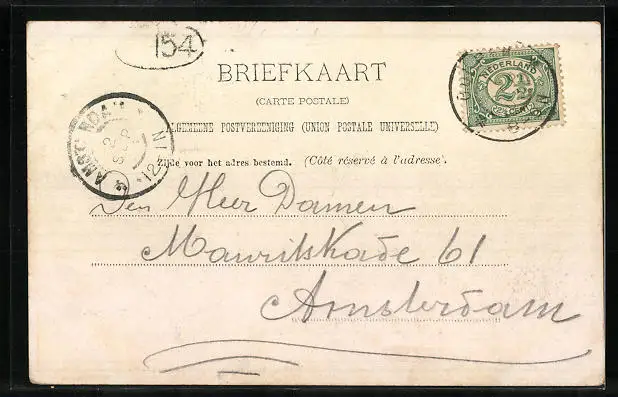 154
BRIEFKAART
(CARTE POSTALE)
ALGEMEENE POSTVEREENIGING (UNION POSTALE UNIVERSELLE)
Zijde voor het adres bestemd. (Côté réservé à l'adresse.
NEDERLAND
2½
Den Heer Damen
Mauritskade 61
Amsterdam